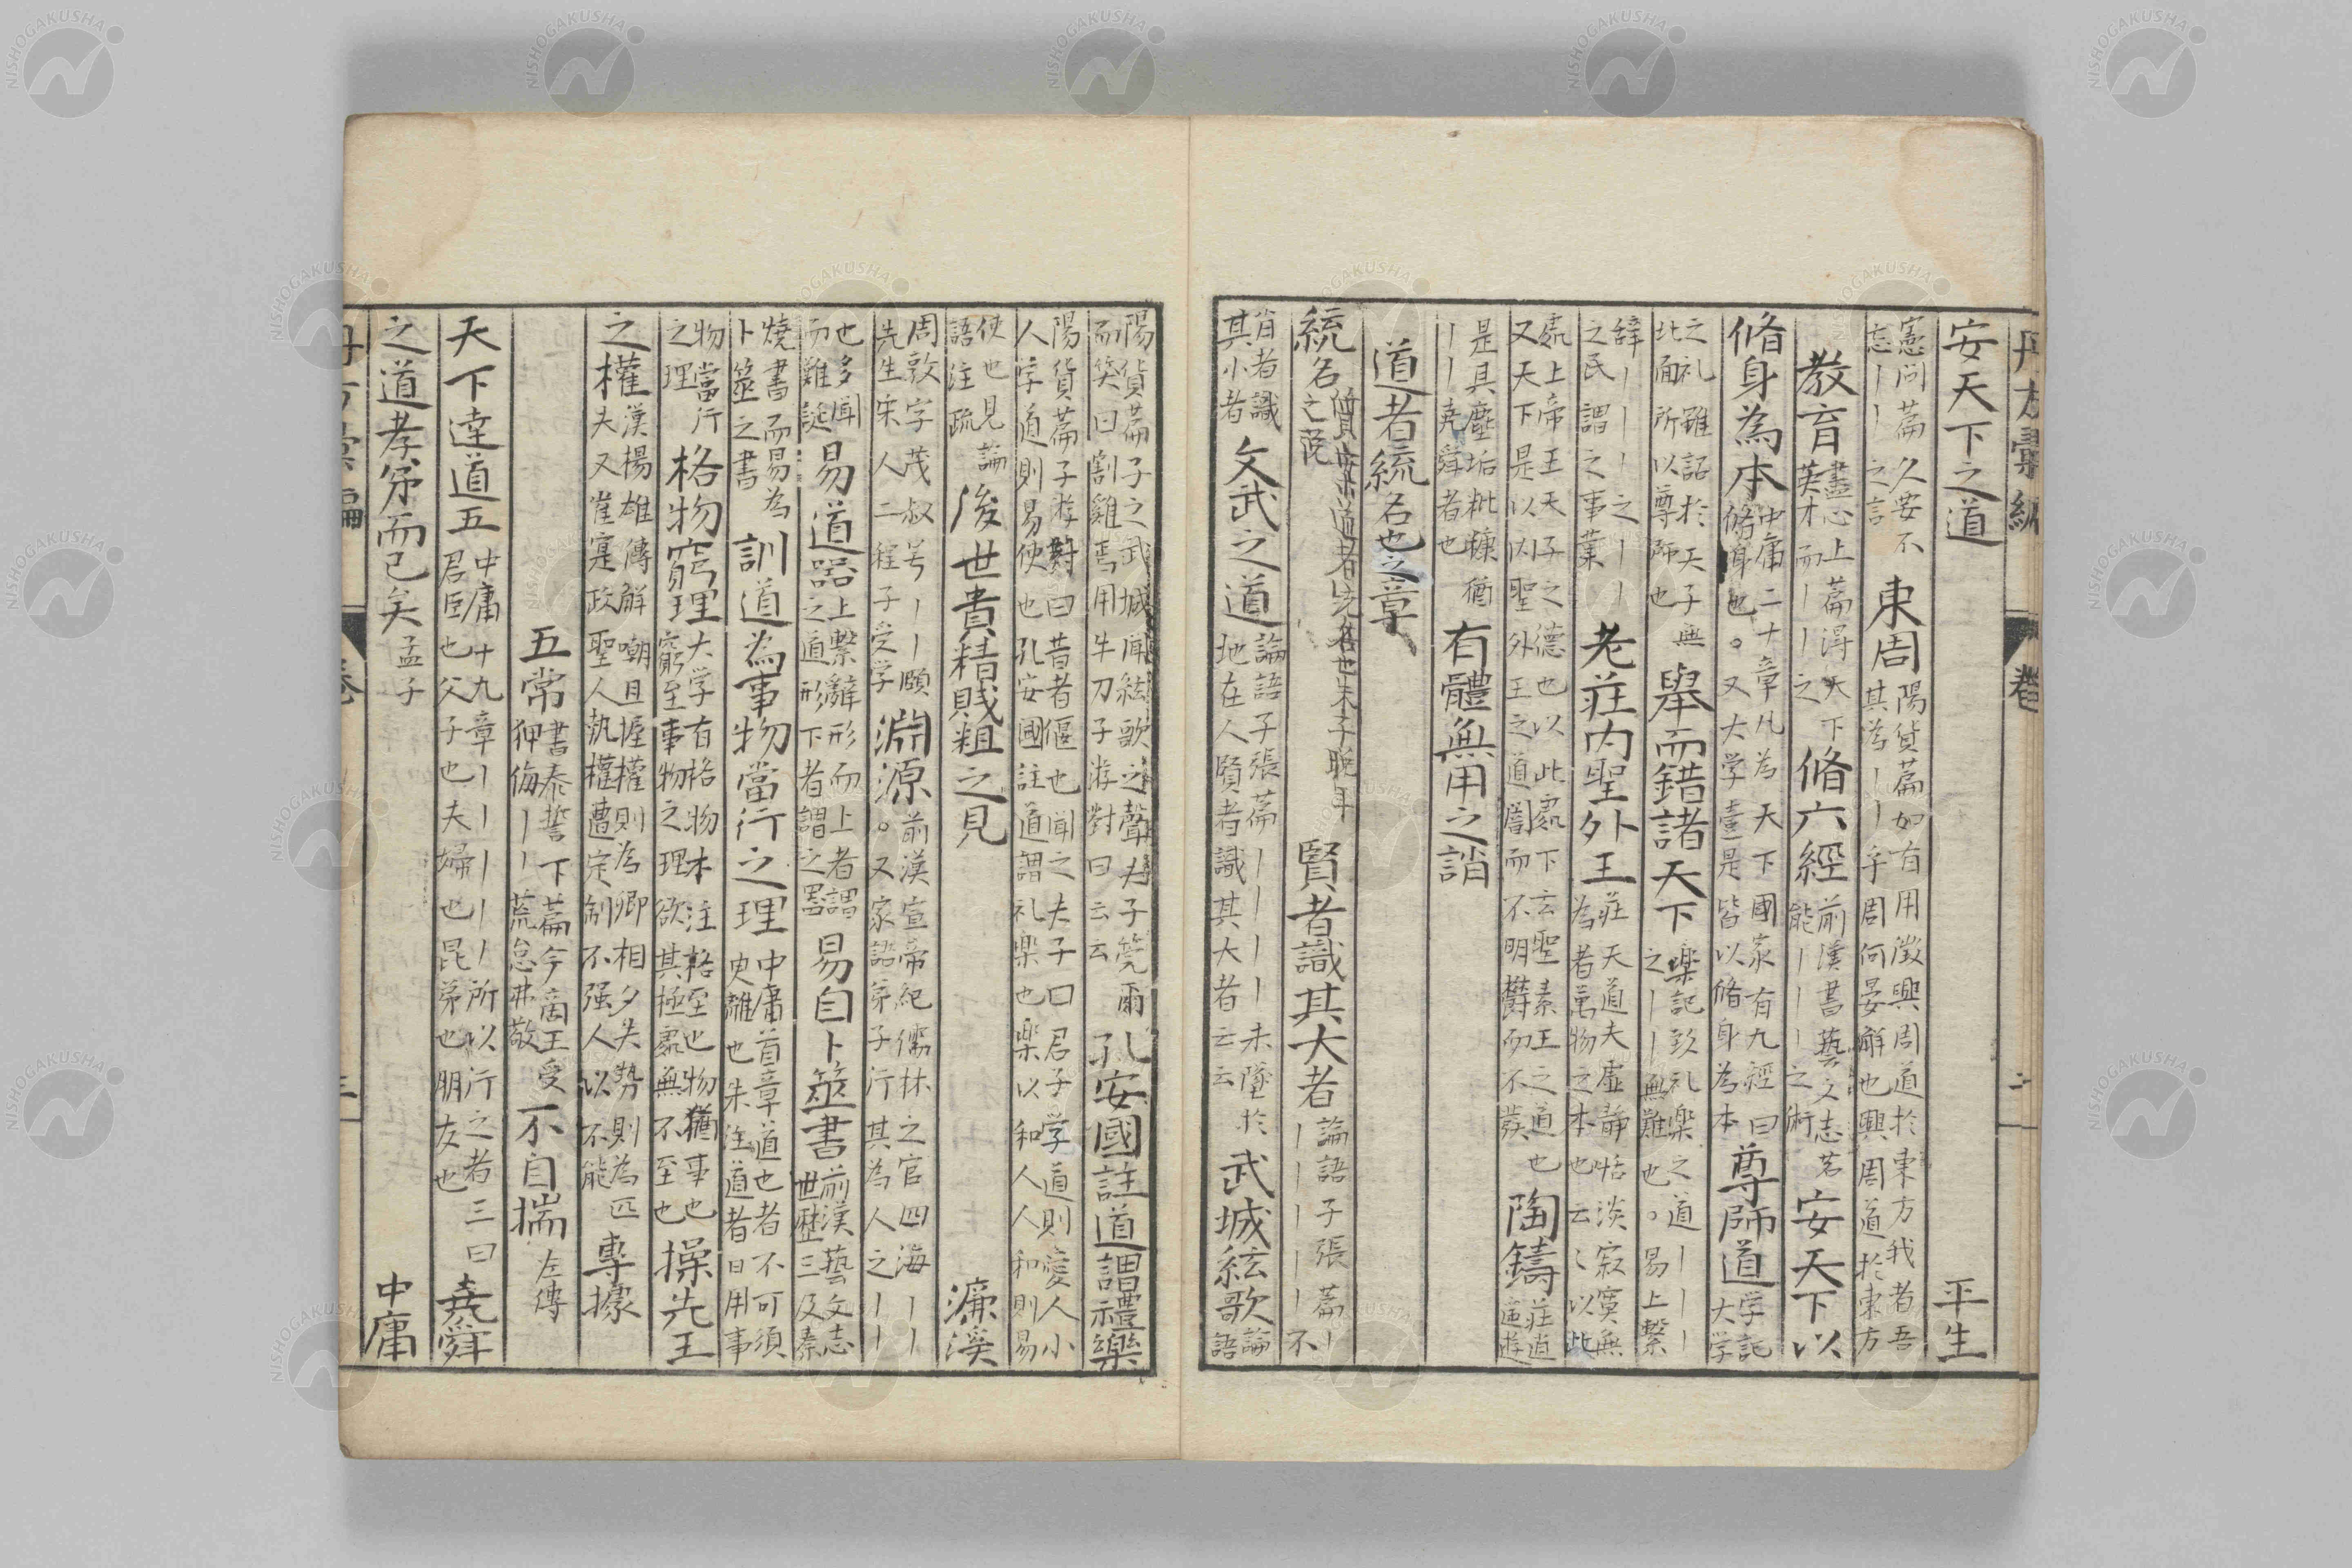 安天下之道　平生
憲问篇久要不
忘丨丨之言
東周
陽貨篇如有用
其為丨丨乎
我者吾
周何晏解也興周道於東方
教育
盡心上篇得天下
英才而丨丨之
脩六經
前漢書藝文志若
能丨丨丨之術
安天下以
脩身為本
中庸二十章凡為天下國家有九經曰
脩身也。又大学壹是皆以脩身為本
尊師道
学記
大学
之礼雖詔於天子無
北面所以尊師也
舉而錯諸天下
楽記致礼楽之道丨丨丨
之丨丨無難也。易上繫
辞丨丨丨之丨丨
之民謂之事業
老荘内聖外王
荘天道夫虚静恬淡寂寞無
為者萬物之本也云〻以此
處上帝王天子之德也以此處下玄聖素王之道也
又天下是以内聖外王之道闇而不明欝而不發
陶鑄
荘逍
遥遊
是其塵垢粃糠猶
丨丨堯舜者也
有體無用之誚
道者統名也之章
統名之說
賢者識其大者
論語子張篇丨
丨丨丨丨丨不
賢者識
其小者
文武之道
論語子張篇丨丨丨丨未墜於
地在人賢者識其大者云云
武城絃歌
論
語
陽貨篇子之武城聞絃歌之聲夫子莞爾
而笑曰割雞焉用牛刀子游對曰云云
孔安國註道謂禮樂
陽貨篇子游對曰昔者偃也聞之夫子曰君子学道則愛人小
人学道則易使也孔安國註道謂礼楽也楽以和人人和則易
使也見論
語注疏
後世貴精賤粗之見　濂溪
周敦字茂叔号丨丨願
先生宋人二程子受学
淵源
前漢宣帝紀儒林之官四海丨丨
。又家語弟子行其為人之丨丨
也多聞
而難誕
易道器
上繫辭形而上者謂
之道形下者謂之器
易自卜筮書
前漢藝文志
世歷三及秦
燒書而易為
卜筮之書
訓道為事物當行之理
中庸首章道也者不可須
臾離也朱注道者日用事
物當行
之理
格物窮理
大学有格物本注格至也物猶事也
窮至事物之理欲其極處無不至也
操先王
之權
漢楊雄傳解嘲旦握權則為卿相夕失勢則為匹
夫又崔寔政聖人執權遭定制不强人以不能
專據
五常
書泰誓下篇今商王受
狎侮丨丨荒怠弗敬
不自揣
左傳
天下達道五
中庸十九章丨丨丨丨丨所以行之者三曰
君臣也父子也夫婦也昆弟也朋友也
堯舜
之道孝弟而已矣
孟子
中庸